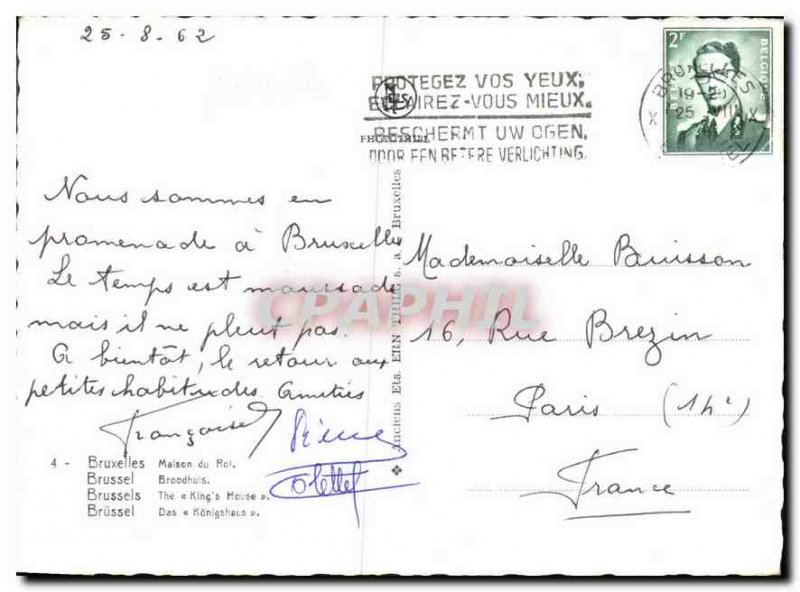 25-8-62
PROTEGEZ VOS YEUX,
ECLAIREZ-VOUS MIEUX.
BESCHERMT UW OGEN,
DOOR EEN BETERE VERLICHTING.
PHOTOTHILL
2F
BELGIQUE
BRUXELLES
19-20
25 VIII
X X
Nous sommes en
promenade à Bruxelles
Le temps est maussade
mais il ne pleut pas.
A bientôt, le retour aux
petites habitudes. Amitiés
Françoise
Colette
4 - Bruxelles Maison du Roi.
Brussel Broodhuis.
Brussels The « King's House ».
Brüssel Das « Königshaus ».
Anciens Ets. ERN THILL s. a. Bruxelles
Mademoiselle Buisson
16, Rue Brezin
Paris (14e)
France
CPAPHIL